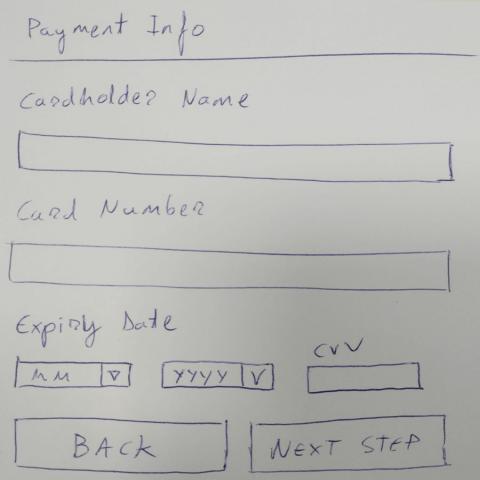 Payment Info
Cardholder Name
Card Number
Expiry Date
CVV
MM
YYYY
BACK
NEXT STEP